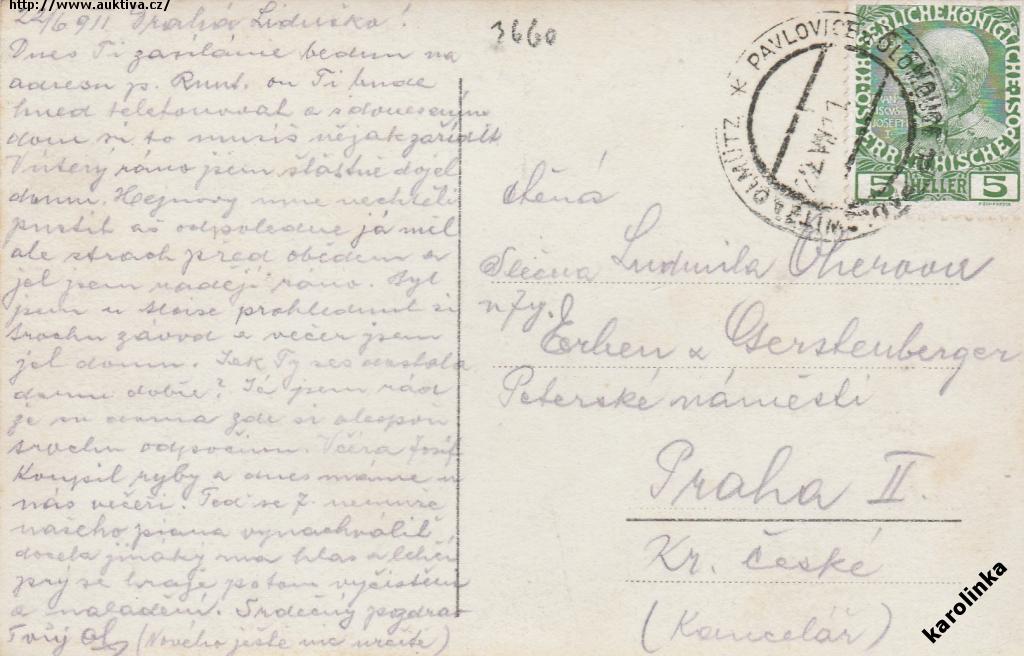 http://www.auktiva.cz/
22/6 911 Drahá Liduško!
Dnes Ti zasíláme bednu na
adresu p. Runt. on Ti bude
hned telefonovat a s donesením
dom si to musíš nějak zařídit
V úterý ráno jsem šťastně dojel
domu. Hejnovy mne nechtěli
pustit až odpoledne já měl
ale strach před obědem a
jel jsem raději ráno. Byl
jsem u prohlednul si
trochu závod a večer jsem
jel domu. Jak Ty ses dostala
domu dobře? Já jsem rád
že sem doma zde si alespoň
trochu odpočinu. Včera Josef
Koupil ryby a dnes máme u
nás večeři. Teď se nemůže
našeho piana vynachválit
docela jinaký má hlas a lehčí
prý se hraje potom vyčistěn
a naladění. Srdečný pozdrav
Tvůj (Nového ještě nic určité)
3660
* PAVLOVICE OLOMOUC
WITZ OLMÜTZ
KAISERLICHE KÖNIGLICHE
ÖSTERREICHISCHE POST
FRANZ JOSEPH I.
5 HELLER 5
Ctěná
Slečna Ludmila
u fy.
Erben & Gerstenberger
Peterské náměstí
Praha II.
Kr. České
(Kancelář)
karolinka